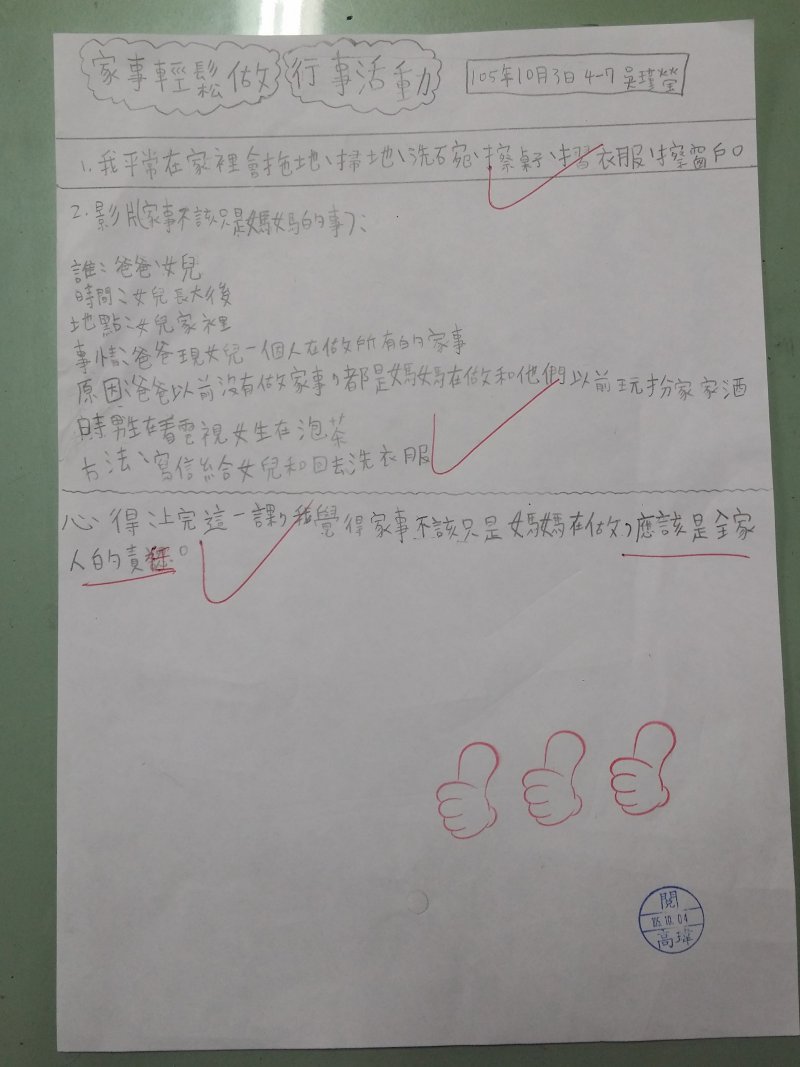 家事輕鬆做 行事活動 105年10月3日 4-7 吳瑾螢
1.我平常在家裡會拖地、掃地、洗碗、擦桌子、摺衣服、擦窗戶。
2.影片(家事不該只是媽媽的事):
誰:爸爸、女兒
時間:女兒長大後
地點:女兒家裡
事情:爸爸現女兒一個人在做所有的家事
原因:爸爸以前沒有做家事,都是媽媽在做和他們以前玩扮家家酒
時男生在看電視女生在泡茶
方法:寫信給女兒和回去洗衣服
心得:上完這一課,我覺得家事不該只是媽媽在做,應該是全家
人的責任。
閱
105.10.04
高瑋